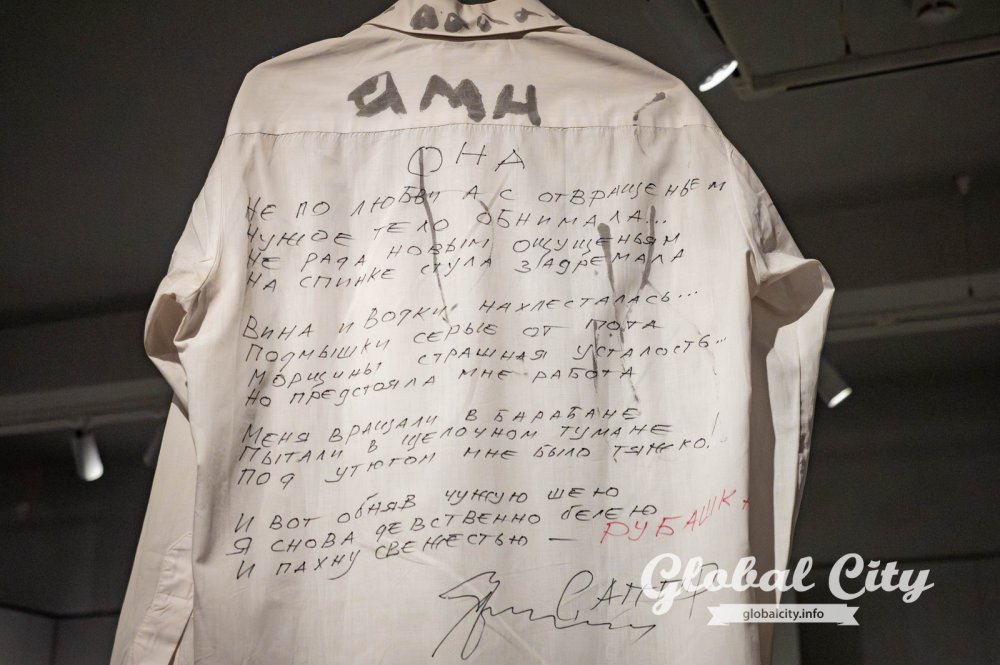 ДМН
ОНА
НЕ ПО ЛЮБВИ А С ОТВРАЩЕНЬЕМ
ЧУЖОЕ ТЕЛО ОБНИМАЛА...
НЕ РАДА НОВЫМ ОЩУЩЕНЬЯМ
НА СПИНКЕ СТУЛА ЗАДРЕМАЛА
ВИНА И ВОДКИ НАХЛЕСТАЛАСЬ...
ПОДМЫШКИ СЕРЫЕ ОТ ПОТА
МОРЩИНЫ СТРАШНАЯ УСТАЛОСТЬ...
НО ПРЕДСТОЯЛА МНЕ РАБОТА
МЕНЯ ВРАЩАЛИ В БАРАБАНЕ
ПЫТАЛИ В ЩЕЛОЧНОМ ТУМАНЕ
ПОД УТЮГОМ МНЕ БЫЛО ТЯЖКО!
И ВОТ ОБНЯВ ЧУЖУЮ ШЕЮ
Я СНОВА ДЕВСТВЕННО БЕЛЕЮ
И ПАХНУ СВЕЖЕСТЬЮ — РУБАШКА
Global City
globalcity.info